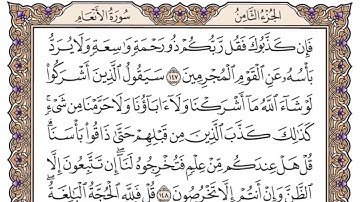 الجزء الثامن سورة الأنعام
فَإِن كَذَّبُوكَ فَقُل رَّبُّكُمْ ذُو رَحْمَةٍ وَاسِعَةٍ وَلَا يُرَدُّ
بَأْسُهُ عَنِ الْقَوْمِ الْمُجْرِمِينَ ١٤٧ سَيَقُولُ الَّذِينَ أَشْرَكُوا
لَوْ شَاءَ اللَّهُ مَا أَشْرَكْنَا وَلَا ءَابَاؤُنَا وَلَا حَرَّمْنَا مِن شَيْءٍ
كَذَٰلِكَ كَذَّبَ الَّذِينَ مِن قَبْلِهِمْ حَتَّىٰ ذَاقُوا بَأْسَنَا
قُلْ هَلْ عِندَكُم مِّنْ عِلْمٍ فَتُخْرِجُوهُ لَنَا إِن تَتَّبِعُونَ إِلَّا
الظَّنَّ وَإِنْ أَنتُمْ إِلَّا تَخْرُصُونَ ١٤٨ قُلْ فَلِلَّهِ الْحُجَّةُ الْبَالِغَةُ